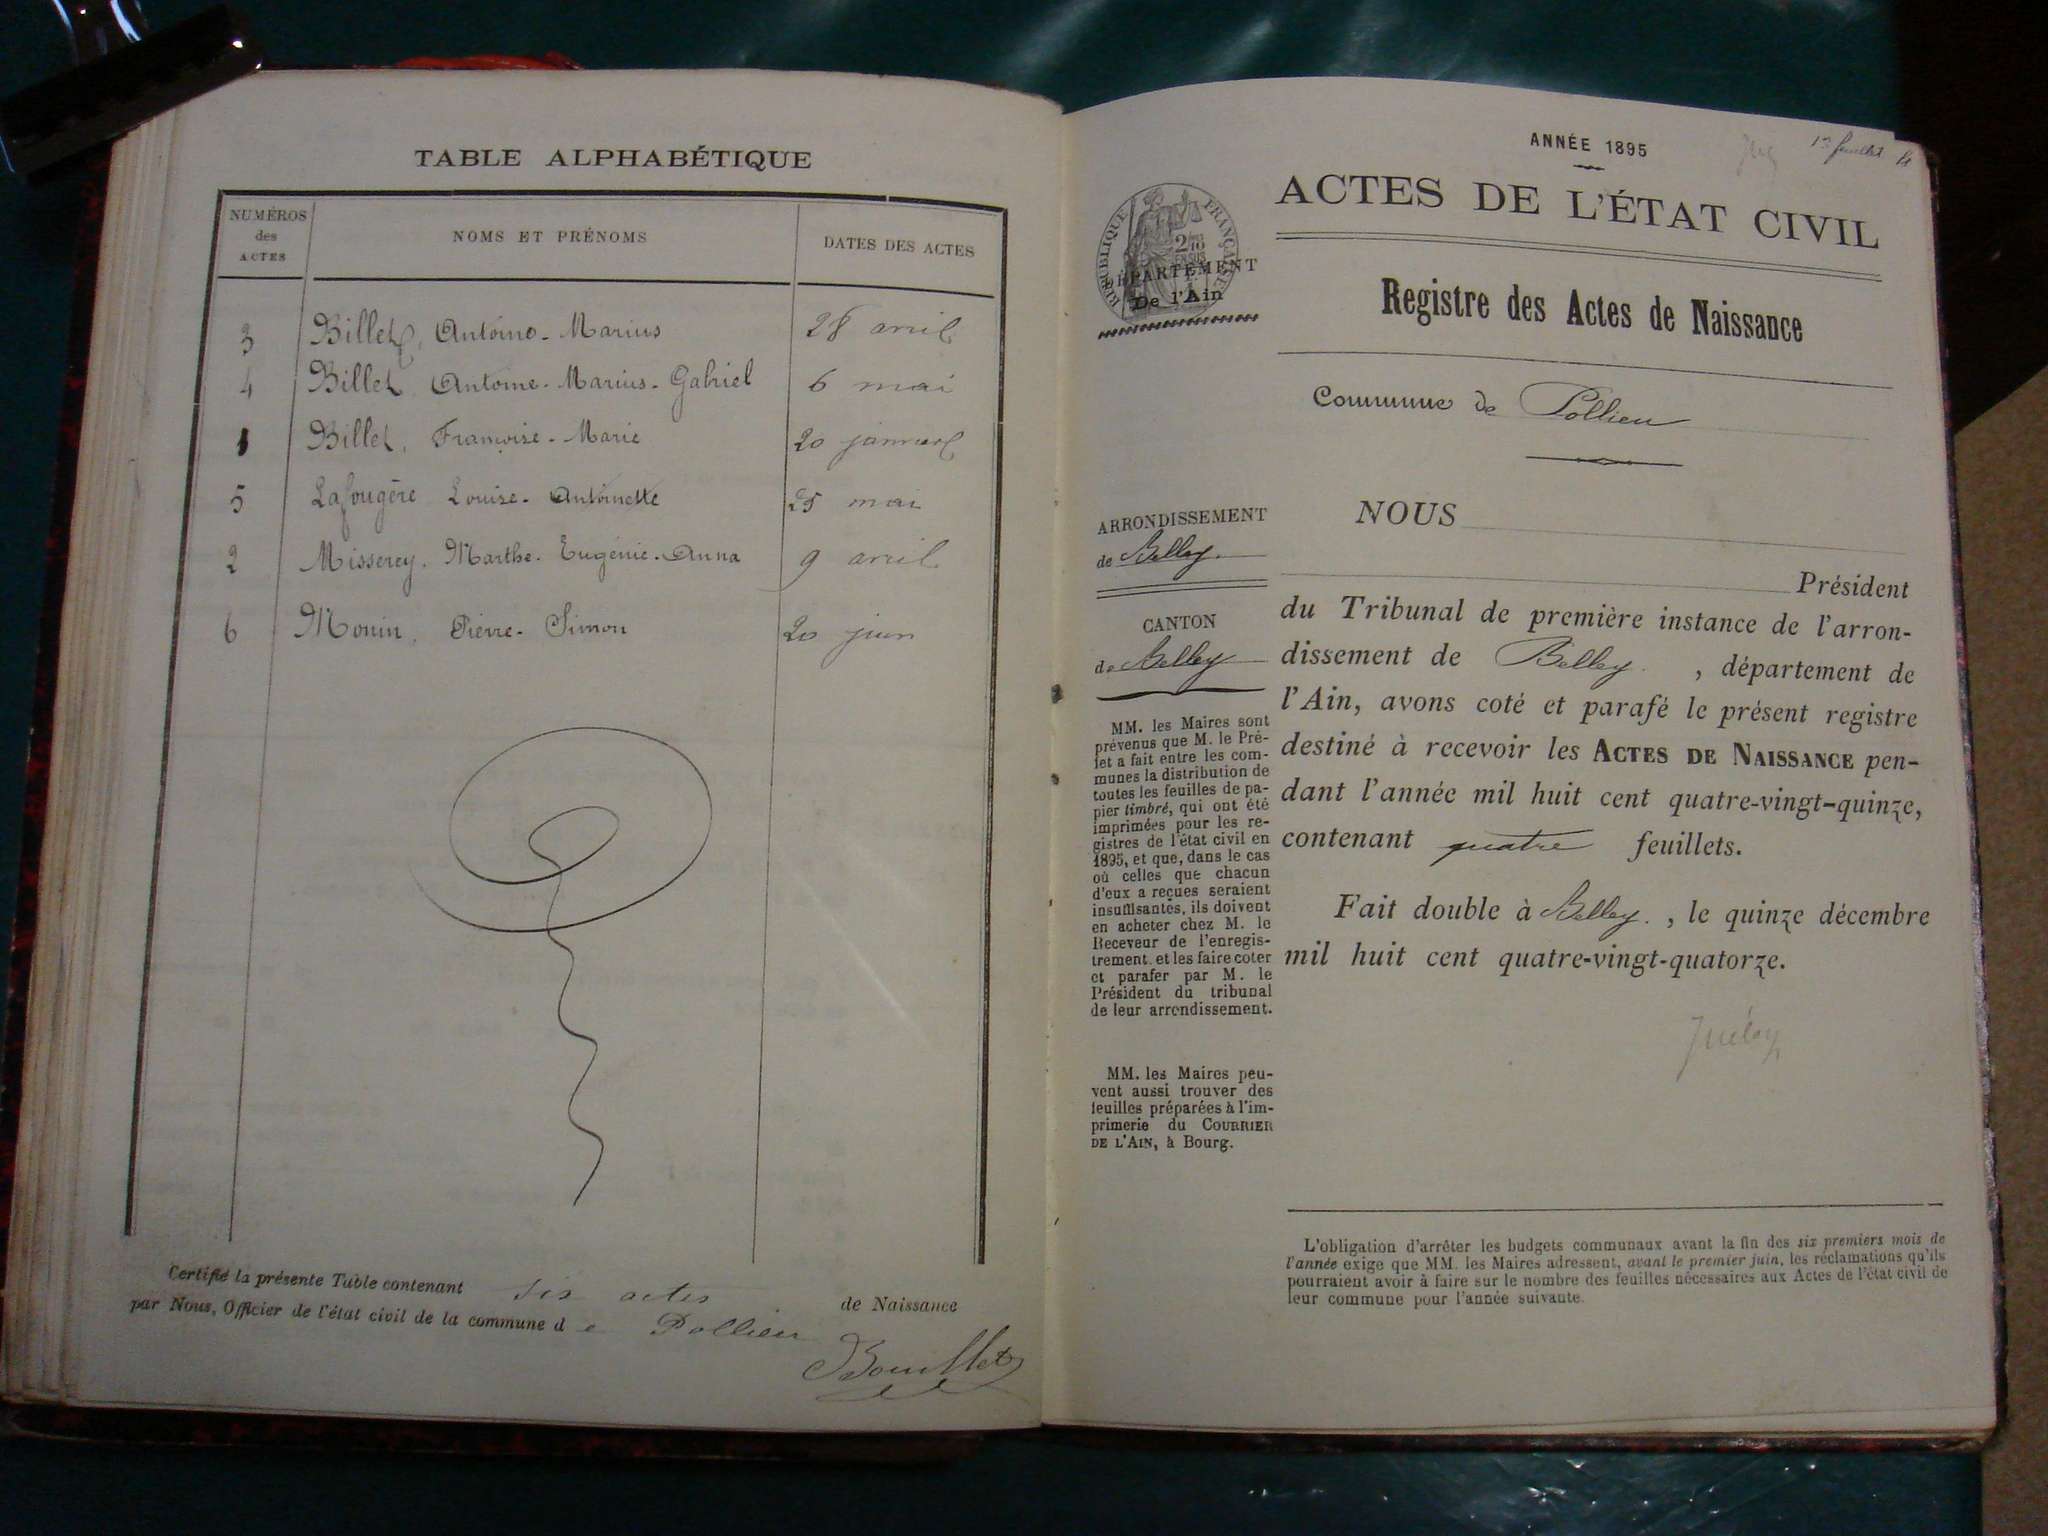 TABLE ALPHABÉTIQUE
NUMÉROS des ACTES
NOMS ET PRÉNOMS
DATES DES ACTES
3 Billet, Antoine-Marius 28 avril
4 Billet Antoine-Marius-Gabriel 6 mai
1 Billet, Françoise-Marie 20 janvier
5 Lafougère Louise-Antoinette 25 mai
2 Misserey, Marthe-Eugénie-Anna 9 avril
6 Monin, Pierre-Simon 20 juin
Certifié la présente Table contenant six actes de Naissance
par Nous, Officier de l'état civil de la commune de Pollieu
Bouillet
ANNÉE 1895
1er feuillet
ACTES DE L'ÉTAT CIVIL
RÉPUBLIQUE FRANÇAISE
DÉPARTEMENT
De l'Ain
Registre des Actes de Naissance
Commune de Pollieu
ARRONDISSEMENT
de Belley.
CANTON
de Belley
MM. les Maires sont
prévenus que M. le Pré-
fet a fait entre les com-
munes la distribution de
toutes les feuilles de pa-
pier timbré, qui ont été
imprimées pour les re-
gistres de l'état civil en
1895, et que, dans le cas
où celles que chacun
d'eux a reçues seraient
insuffisantes, ils doivent
en acheter chez M. le
Receveur de l'enregis-
trement. et les faire coter
et parafer par M. le
Président du tribunal
de leur arrondissement.
MM. les Maires peu-
vent aussi trouver des
feuilles préparées à l'im-
primerie du COURRIER
DE L'AIN, à Bourg.
NOUS
Président
du Tribunal de première instance de l'arron-
dissement de Belley. , département de
l'Ain, avons coté et parafé le présent registre
destiné à recevoir les ACTES DE NAISSANCE pen-
dant l'année mil huit cent quatre-vingt-quinze,
contenant quatre feuillets.
Fait double à Belley. , le quinze décembre
mil huit cent quatre-vingt-quatorze.
L'obligation d'arrêter les budgets communaux avant la fin des six premiers mois de
l'année exige que MM. les Maires adressent, avant le premier juin, les réclamations qu'ils
pourraient avoir à faire sur le nombre des feuilles nécessaires aux Actes de l'état civil de
leur commune pour l'année suivante.